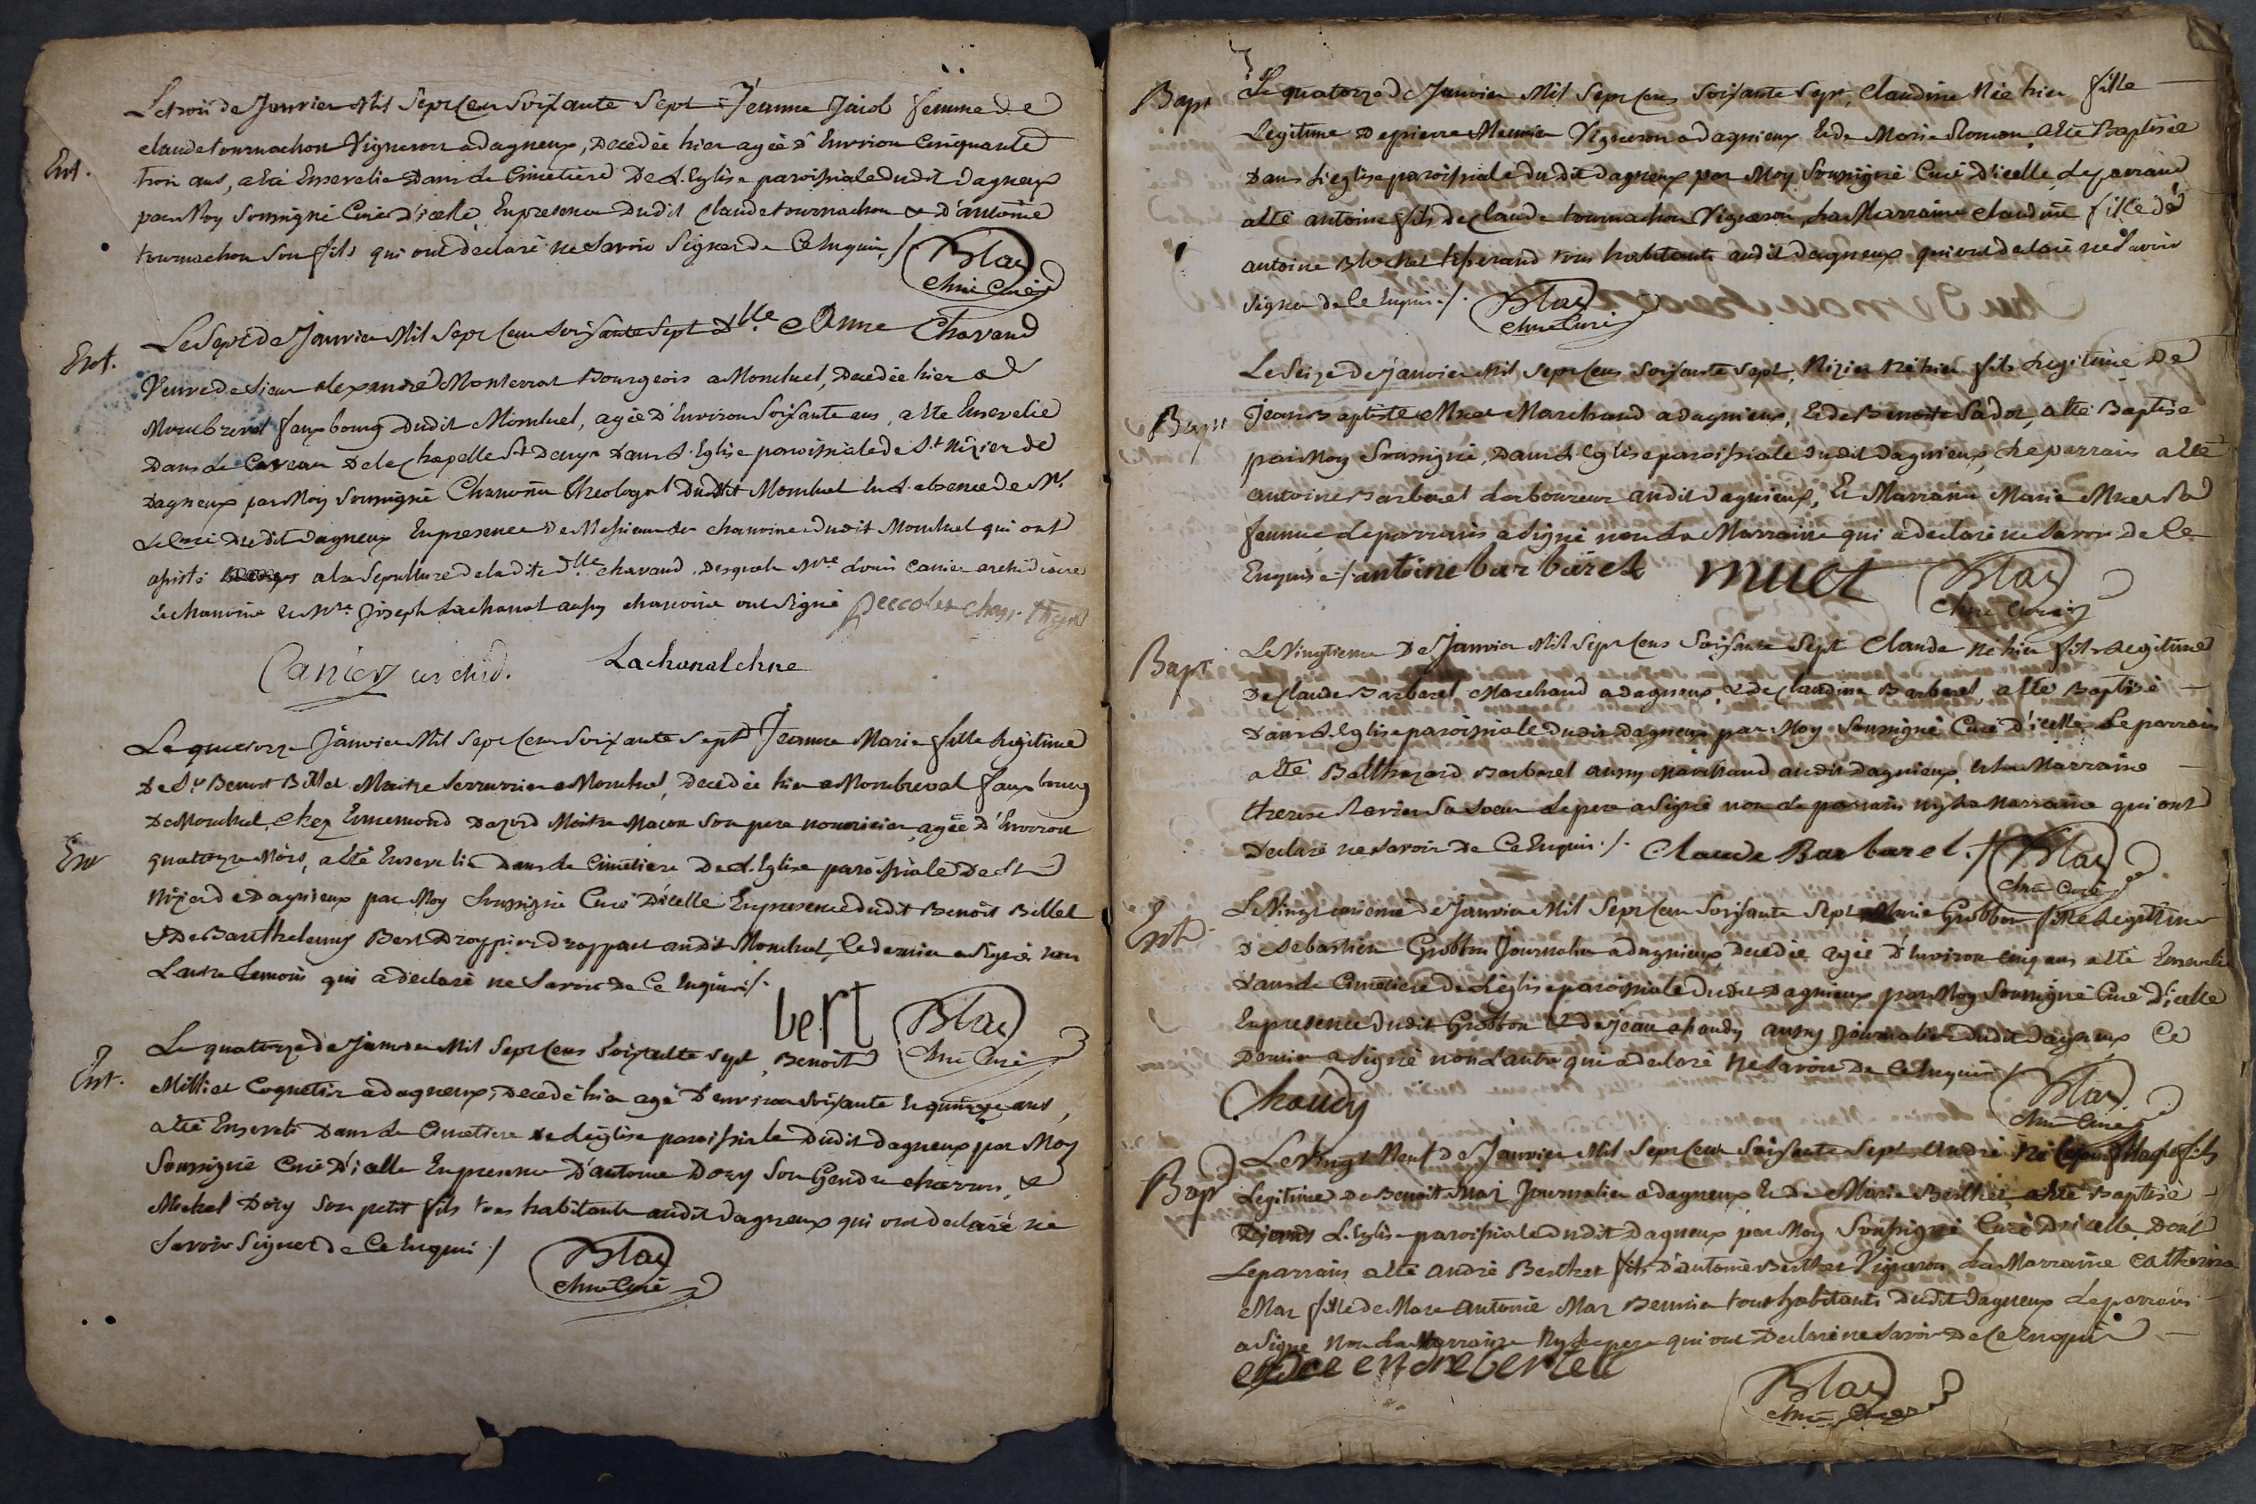 Ent.
Le trois de Janvier Mil Sept Cent Soixante Sept Jeanne Jaiol femme de
claude tournachon Vigneron a dagneux, Decedée hier agée d'Environ Cinquante
trois ans, a été Ensevelie Dans Le Cimetiere De L'Eglise paroissiale dudit dagneux
par Moy Soussigné Curé D'icelle, En presence Dudit Claude tournachon & D'antoine
tournachon Son fils qui ont declaré ne Savoir Signer de Ce Enquis ./.
Blay
chne Curé
Ent.
Le Sept de Janvier Mil Sept Cent Soixante Sept Dlle Anne Chavand
Veuve de Sieur alexandre Monterrat Bourgeois a Montluel, Decedée hier a
Montbreval faux bourg dudit Montluel, agée d'Environ Soixante ans, a été Ensevelie
Dans Le Caveau De la Chapelle St Denys Dans L'Eglise paroissiale de St Nizier de
Dagneux par Moy Soussigné Chanoine Theologal Dudit Montluel En L'absence de Mr
Le Curé Dudit Dagneux En presence De Messieurs les chanoines dudit Montluel qui ont
assisté a la Sepulture de la dite Dlle chavand. Desquels Mre Louis Canier archidiacre
& chanoine & Mre Joseph Lachanal aussy chanoine ont Signé
Canier archid.
Lachanal chne
Ent
Le quatorze Janvier Mil Sept Cent Soixante Sept Jeanne Marie fille Legitime
De Sr Benoit Billet Maitre Serrurier a Montluel, Decedée hier a Montbreval faux bourg
De Montluel, chez Ennemond Dazord Maitre Maçon Son pere nourricier, agée d'Environ
quatorze Mois, a été Ensevelie Dans Le Cimetiere De L'Eglise paroissiale De St
Nizier de Dagnieux par Moy Soussigné Curé D'icelle En presence dudit Benoit Billet
& De Barthelemy Bert Drappier drappant audit Montluel, Ce dernier a Signé non
L'autre temoin qui a declaré ne Savoir De Ce Enquis ./.
bert
Blay
chne Curé
Ent.
Le quatorze de Janvier Mil Sept Cent Soixante Sept, Benoit
Milliet Coquetier a dagneux, Decedé hier agé d'environ Soixante & quinze ans,
a été Enseveli Dans Le Cimetiere de L'église paroissiale Dudit Dagneux par Moy
Soussigné Curé D'icelle En presence D'antoine Dory Son Gendre charron, &
Michel Dory Son petit fils tous habitants audit Dagneux qui ont declaré ne
Savoir Signer de Ce Enquis ./.
Blay
chne Curé
Bapt
Le quatorze De Janvier Mil Sept Cent Soixante Sept, Claudine Née hier fille
Legitime De pierre Meunier Vigneron a dagnieux & de Marie Romon a été Baptisée
Dans L'eglise paroissiale du dit Dagneux par Moy Soussigné Curé D'icelle, Le parrain
a été antoine fils de Claude tournachon Vigneron, La Marraine claudine fille de
antoine tisserand tous habitants audit dagneux qui ont declaré ne Savoir
Signer de Ce Enquis ./.
Blay
chne Curé
Bapt
Le Seize de Janvier Mil Sept Cent Soixante Sept, Nizier Né hier fils Legitime De
Jean Baptiste Muet Marchand a dagnieux, & de Benoite Sadot, a été Baptisé
par Moy Soussigné, Dans L'Eglise paroissiale dudit Dagnieux, Le parrain a été
antoine Barbaret Laboureur audit dagnieux, & Marraine Marie Muet Sa
femme, Le parrain a Signé non La Marraine qui a declaré ne Savoir de Ce
Enquise ./. antoine barbaret
muet
Blay
chne Curé
Bapt
Le Vingtieme De Janvier Mil Sept Cent Soixante Sept Claude Né hier fils Legitime
De Claude Barbaret Marchand a dagneux, & de Claudine Barbaret, a été Baptisé
Dans L'Eglise paroissiale Dudit dagneux par Moy Soussigné Curé D'icelle, Le parrain
a été Balthazard Barbaret aussy Marchand audit Dagnieux, & La Marraine
therese Ravier Sa Soeur Le pere a Signé non Le parrain ny La Marraine qui ont
Declaré ne Savoir De Ce Enquis ./. Claude Barbaret ./.
Blay
chne Curé
Ent
Le Vingt unieme de Janvier Mil Sept Cent Soixante Sept Marie Grobbon fille Legitime
De Sebastien Grobbon Journalier a dagnieux, Decedée agée D'Environ cinq ans a été Ensevelie
Dans Le Cimetiere de L'église paroissiale Dudit Dagnieux par Moy Soussigné Curé D'icelle
En presence dudit Grobbon & de Jean chaudy aussy Journalier dudit Dagneux Ce
Dernier a Signé non L'autre qui a declaré Ne Savoir De Ce Enquis
Chaudy
Blay
chne Curé
Bapt
Le Vingt Neuf de Janvier Mil Sept Cent Soixante Sept, André fils
Legitime De Benoit Maz Journalier a dagneux & De Marie Berthet, a été Baptisé
Dans L'Eglise paroissiale dudit Dagneux par Moy Soussigné Curé D'icelle, Dont
Le parrain a été André Berthet fils D'antoine Berthet Vigneron, La Marraine Catherine
Maz fille de Marc Antoine Maz tous habitants Dudit Dagneux Le parrain
a Signé non La Marraine Ny Le pere qui ont Declaré ne Savoir De Ce Enquis
Blay
chne Curé